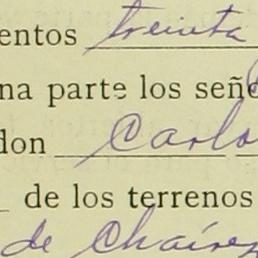 entos treinta
na parte los seño
don Carlo
de los terrenos
de Chaírez